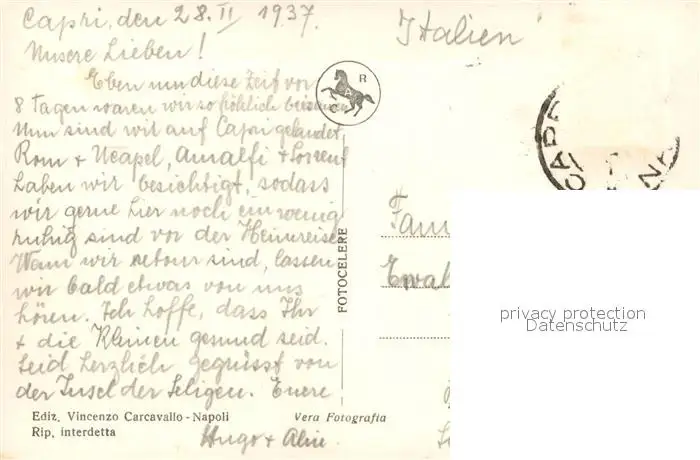 Capri, den 28. II 1937.
Italien
Unsere Lieben!
Eben um diese Zeit vor
8 Tagen waren wir so fröhlich beisammen
Nun sind wir auf Capri gelandet,
Rom + Neapel, Amalfi + Sorrent
haben wir besichtigt, sodass
wir gerne hier noch ein wenig
ruhig sind vor der Heimreise.
Wann wir retour sind, lassen
wir bald etwas von uns
hören. Ich hoffe, dass Ihr
+ die Kleinen gesund seid.
Seid herzlich gegrüsst von
der Insel der Seligen. Euere
Hugo + Aline.
R
FOTOCELERE
Fam
Ewal
privacy protection
Datenschutz
Ediz. Vincenzo Carcavallo - Napoli
Rip. interdetta
Vera Fotografia